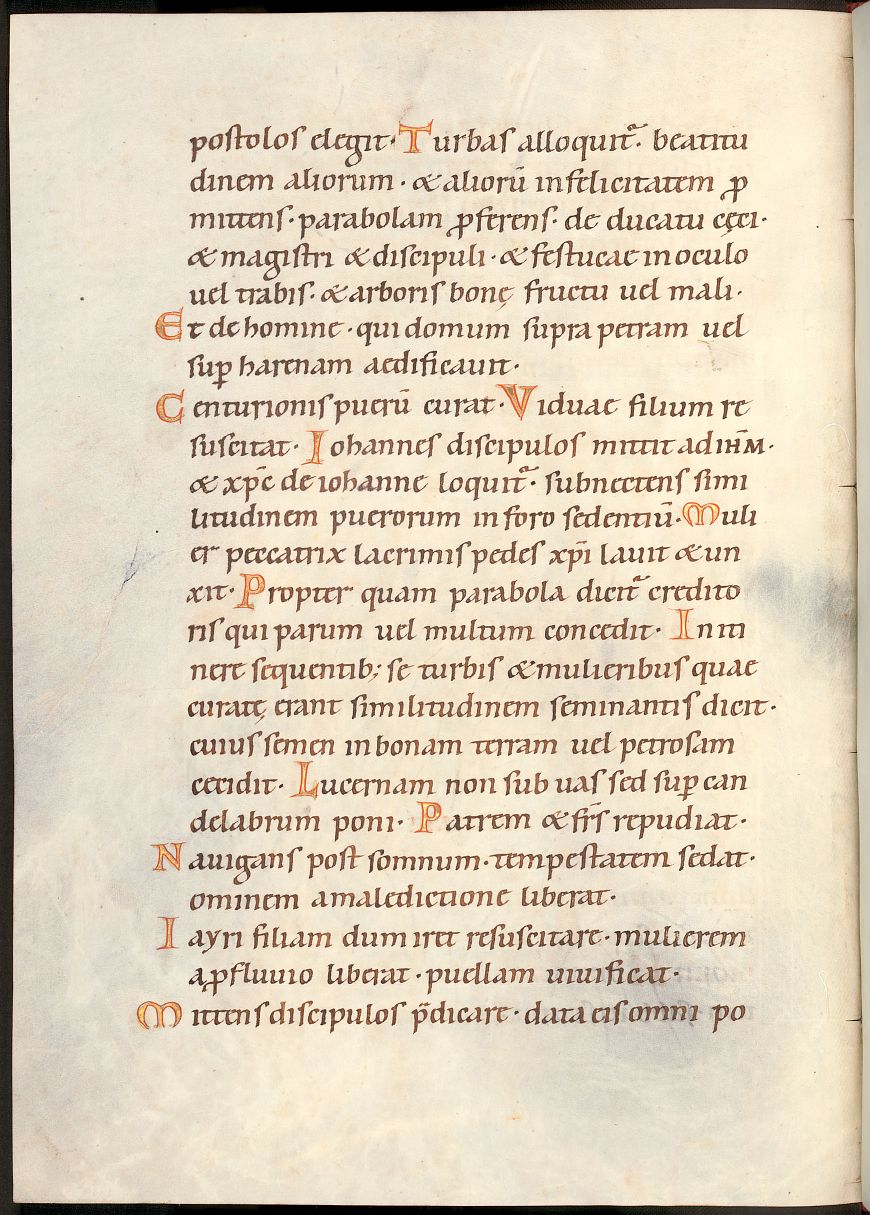 postolos elegit· Turbas alloquit᷑· beatitu
dinem aliorum· & aliorū infelicitatem ꝓ
mittens· parabolam ꝓferens· de ducatu cęci·
& magistri & discipuli· & festucae in oculo
uel trabis· & arboris bonę fructu uel mali·
Et de homine· qui domum supra petram uel
suꝑ harenam aedificauit·
Centurionis puerū curat· Viduae filium re
suscitat· Iohannes discipulos mittit ad ihm̄·
& xp̄c de iohanne loquit᷑· subnectens simi
litudinem puerorum in foro sedentiū· Muli
er peccatrix lacrimis pedes xp̄i lauit & un
xit· Propter quam parabola dicit᷑ credito
ris qui parum uel multum concedit· In iti
nere sequentib; se turbis & mulieribus quae
curatę erant similitudinem seminantis dicit·
cuius semen in bonam terram uel petrosam
cecidit· Lucernam non sub uas sed suꝑ can
delabrum poni· Patrem & frs̄ repudiat·
Nauigans post somnum· tempestatem sedat·
ominem a maledictione liberat·
Iayri filiam dum iret resuscitare· mulierem
a ꝓfluuio liberat· puellam uiuificat·
Mittens discipulos p̄dicare· data eis omni po